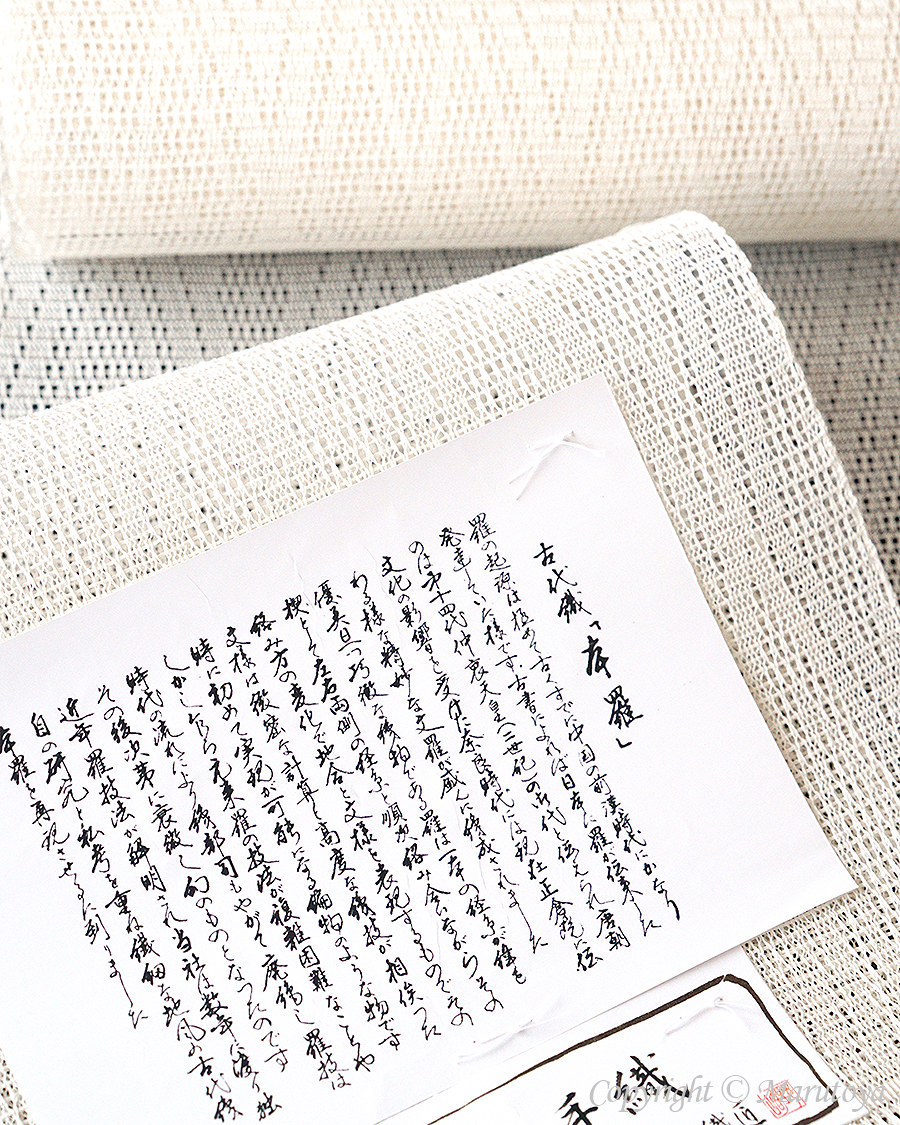 古代織「本羅」
羅の起源は極めて古くすでに中国の前漢時代にかなり
発達していた様です。古書によれば日本に羅が伝来した
のは第十四代仲哀天皇(二世紀)の御代と伝えられ唐朝
文化の影響を受け奈良時代には現在正倉院に伝
わる様な精妙な文羅が盛んに織成されました
優美且つ巧緻な織物である羅は一本の経糸が幾も
左右両側の経糸と順次絡み合いながらその
絡み方の変化で地合と文様を表現するものでその
文様は緻密な計算と高度な織技が相俟った
時に初めて実現が可能になる編物のような物です
しかし乍ら元来羅の技法が複雑困難なことや
時代の流れにより織部司もやがて廃絶し羅技は
その後次第に衰微し幻のものとなったのです
近年羅技法が解明され当社は数年に渡り独
自の研究と私考を重ね繊細な地風の古代織
本羅を再現させるに到りました
手織
Copyright © Marutoya